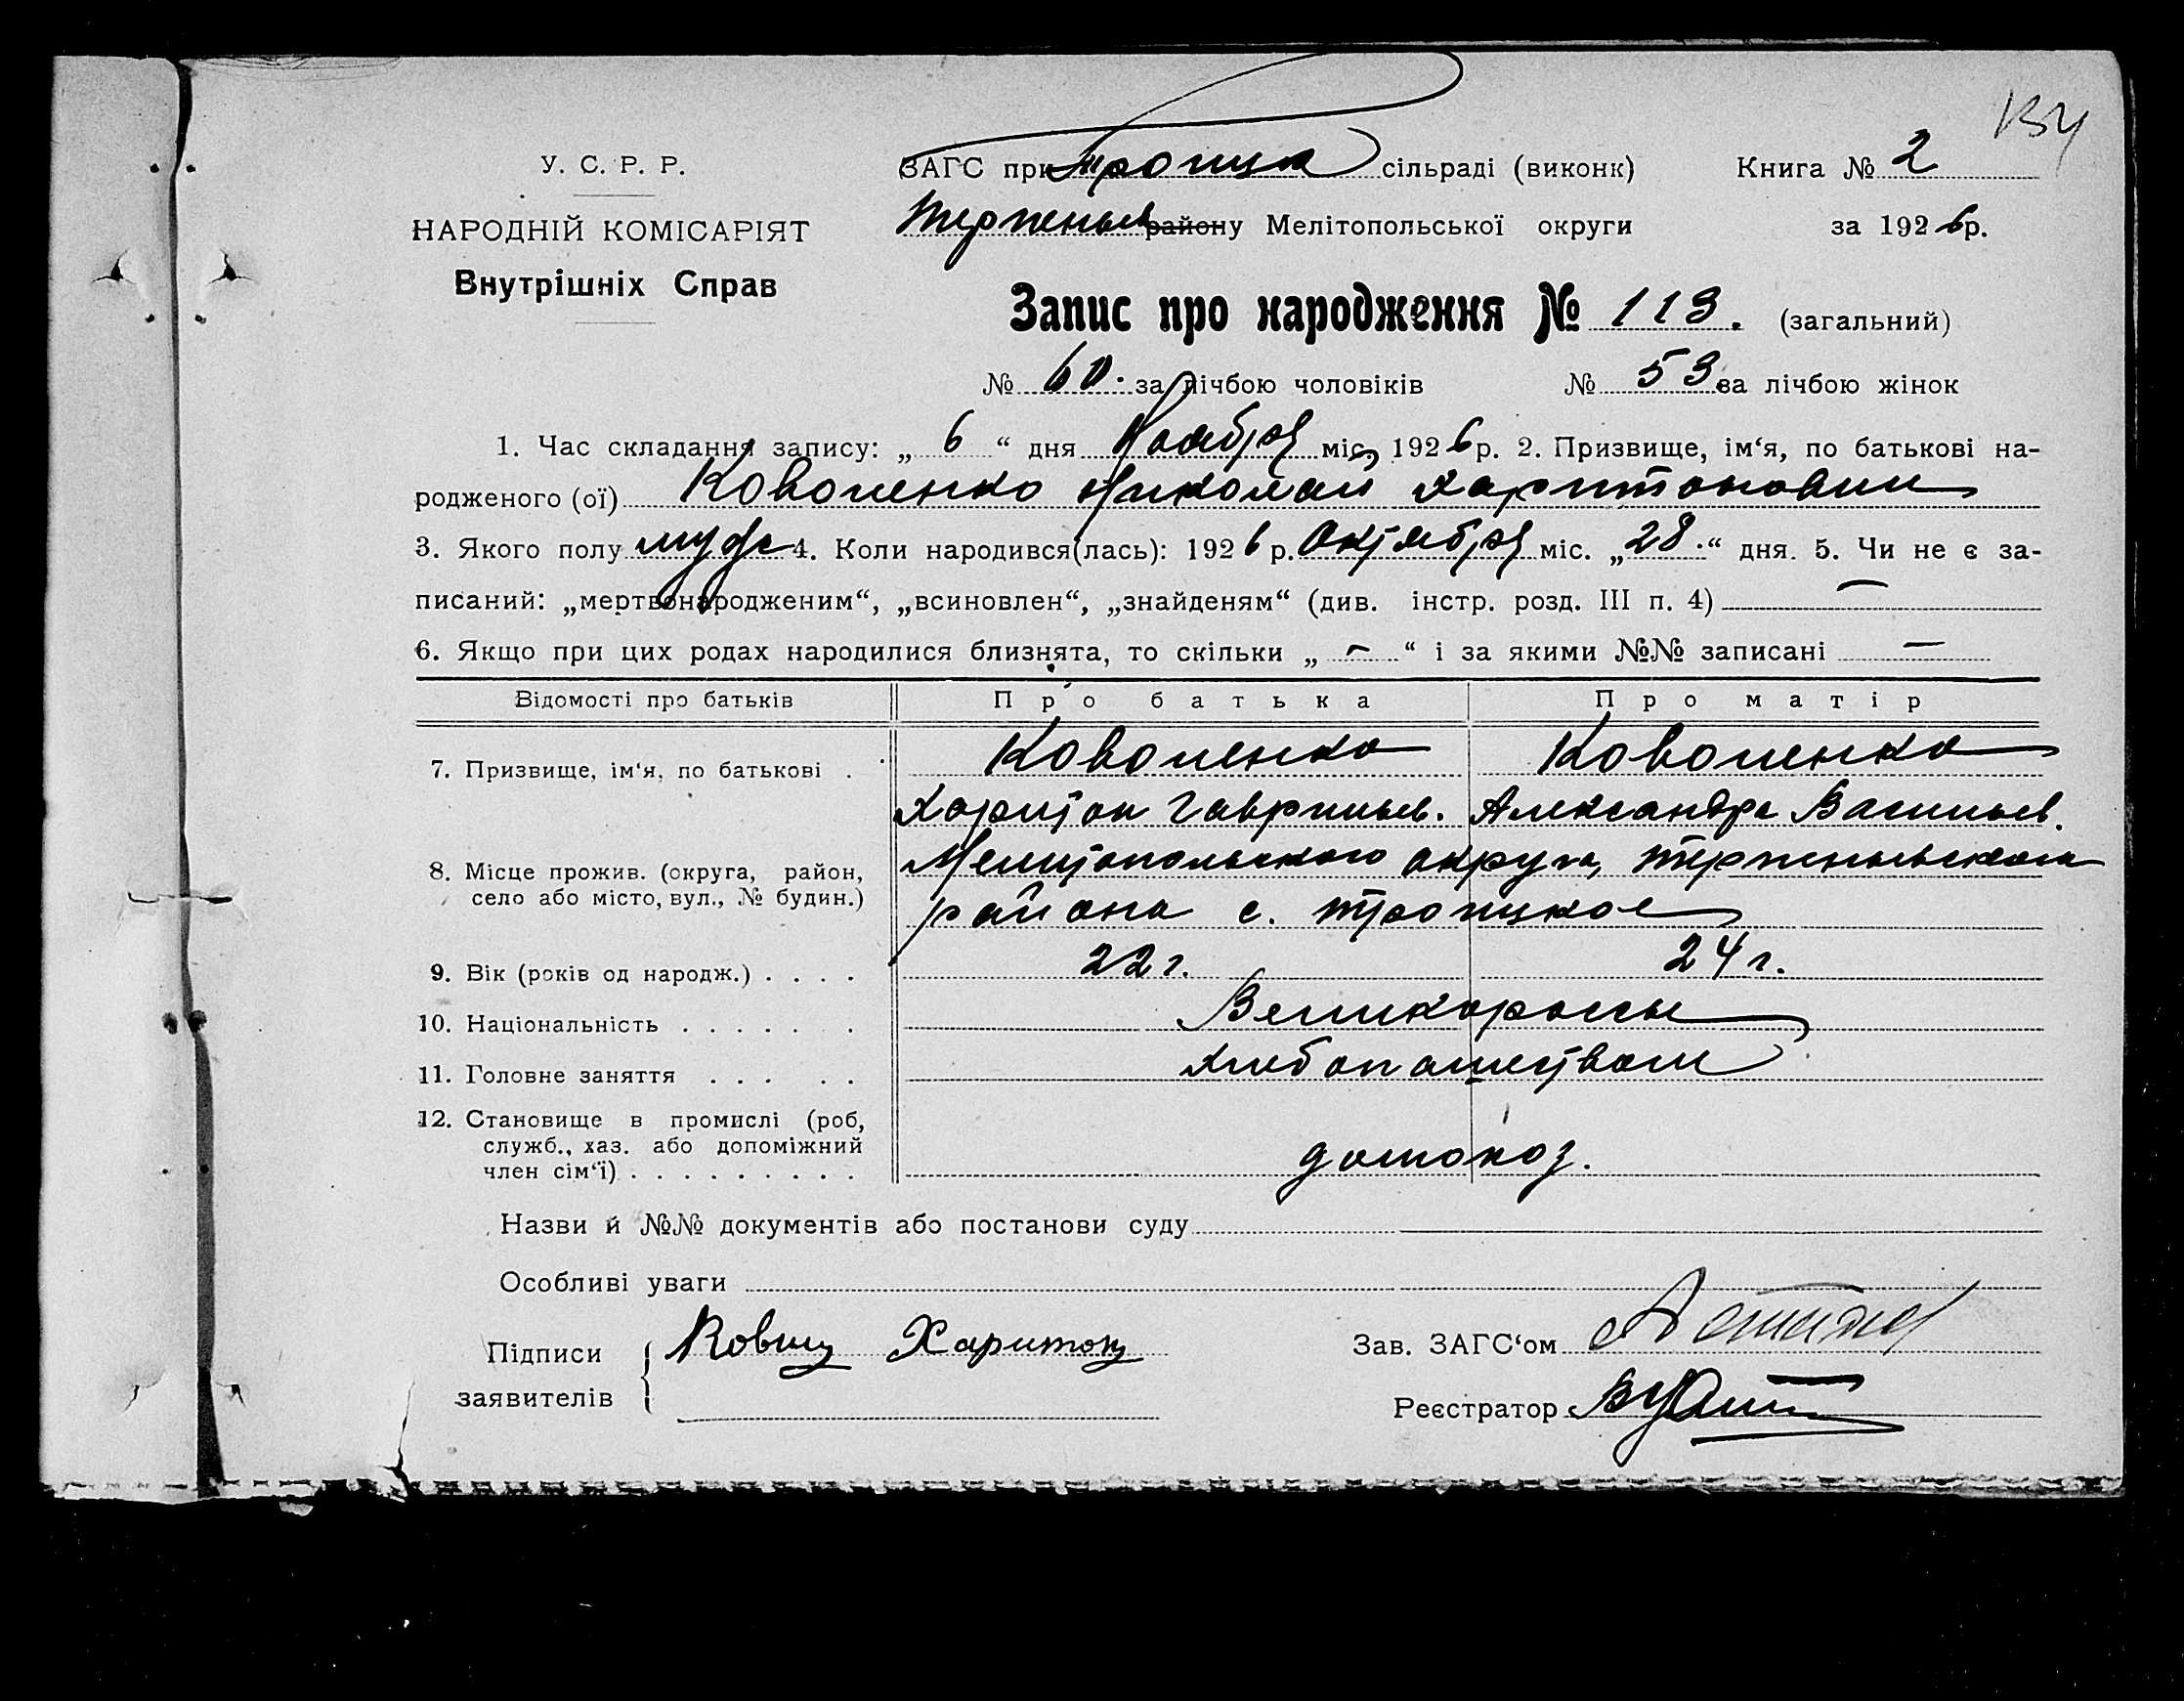 134
У. С. Р. Р.
НАРОДНІЙ КОМІСАРІЯТ
Внутрішніх Справ
ЗАГС при Троицк сільраді (виконк) Книга № 2
Терпеньев району Мелітопольської округи за 1926 р.
Запис про народження № 113. (загальний)
№ 60. за лічбою чоловіків № 53 за лічбою жінок
1. Час складання запису: „ 6 “ дня Ноября міс, 1926 р. 2. Призвище, ім‘я, по батькові на-
родженого (ої) Коваленко Николай Харитонович
3. Якого полу мужс 4. Коли народився(лась): 1926 р. Октября міс. „28.“ дня. 5. Чи не є за-
писаний: „мертвонародженим“, „всиновлен“, „знайденям“ (див. інстр. розд. III п. 4) —
6. Якщо при цих родах народилися близнята, то скільки „ - “ і за якими №№ записані —
Відомості про батьків Про батька Про матір
7. Призвище, ім‘я, по батькові . Коваленко Коваленко
Харитон Гаврильев. Александра Васильев.
8. Місце прожив. (округа, район, Мелитопольского округа, Терпеньевского
село або місто, вул., № будин.) района с. Троицкое
9. Вік (років од народж.) . . . . 22 г. 24 г.
10. Національність . . . . . . . Великороссы
11. Головне заняття . . . . . Хлебопашеством
12. Становище в промислі (роб,
служб., хаз. або допоміжний
член сім‘ї) . . . . . . . . . домохоз.
Назви й №№ документів або постанови суду
Особливі уваги
Підписи Харитон Зав. ЗАГС‘ом
заявителів Реєстратор